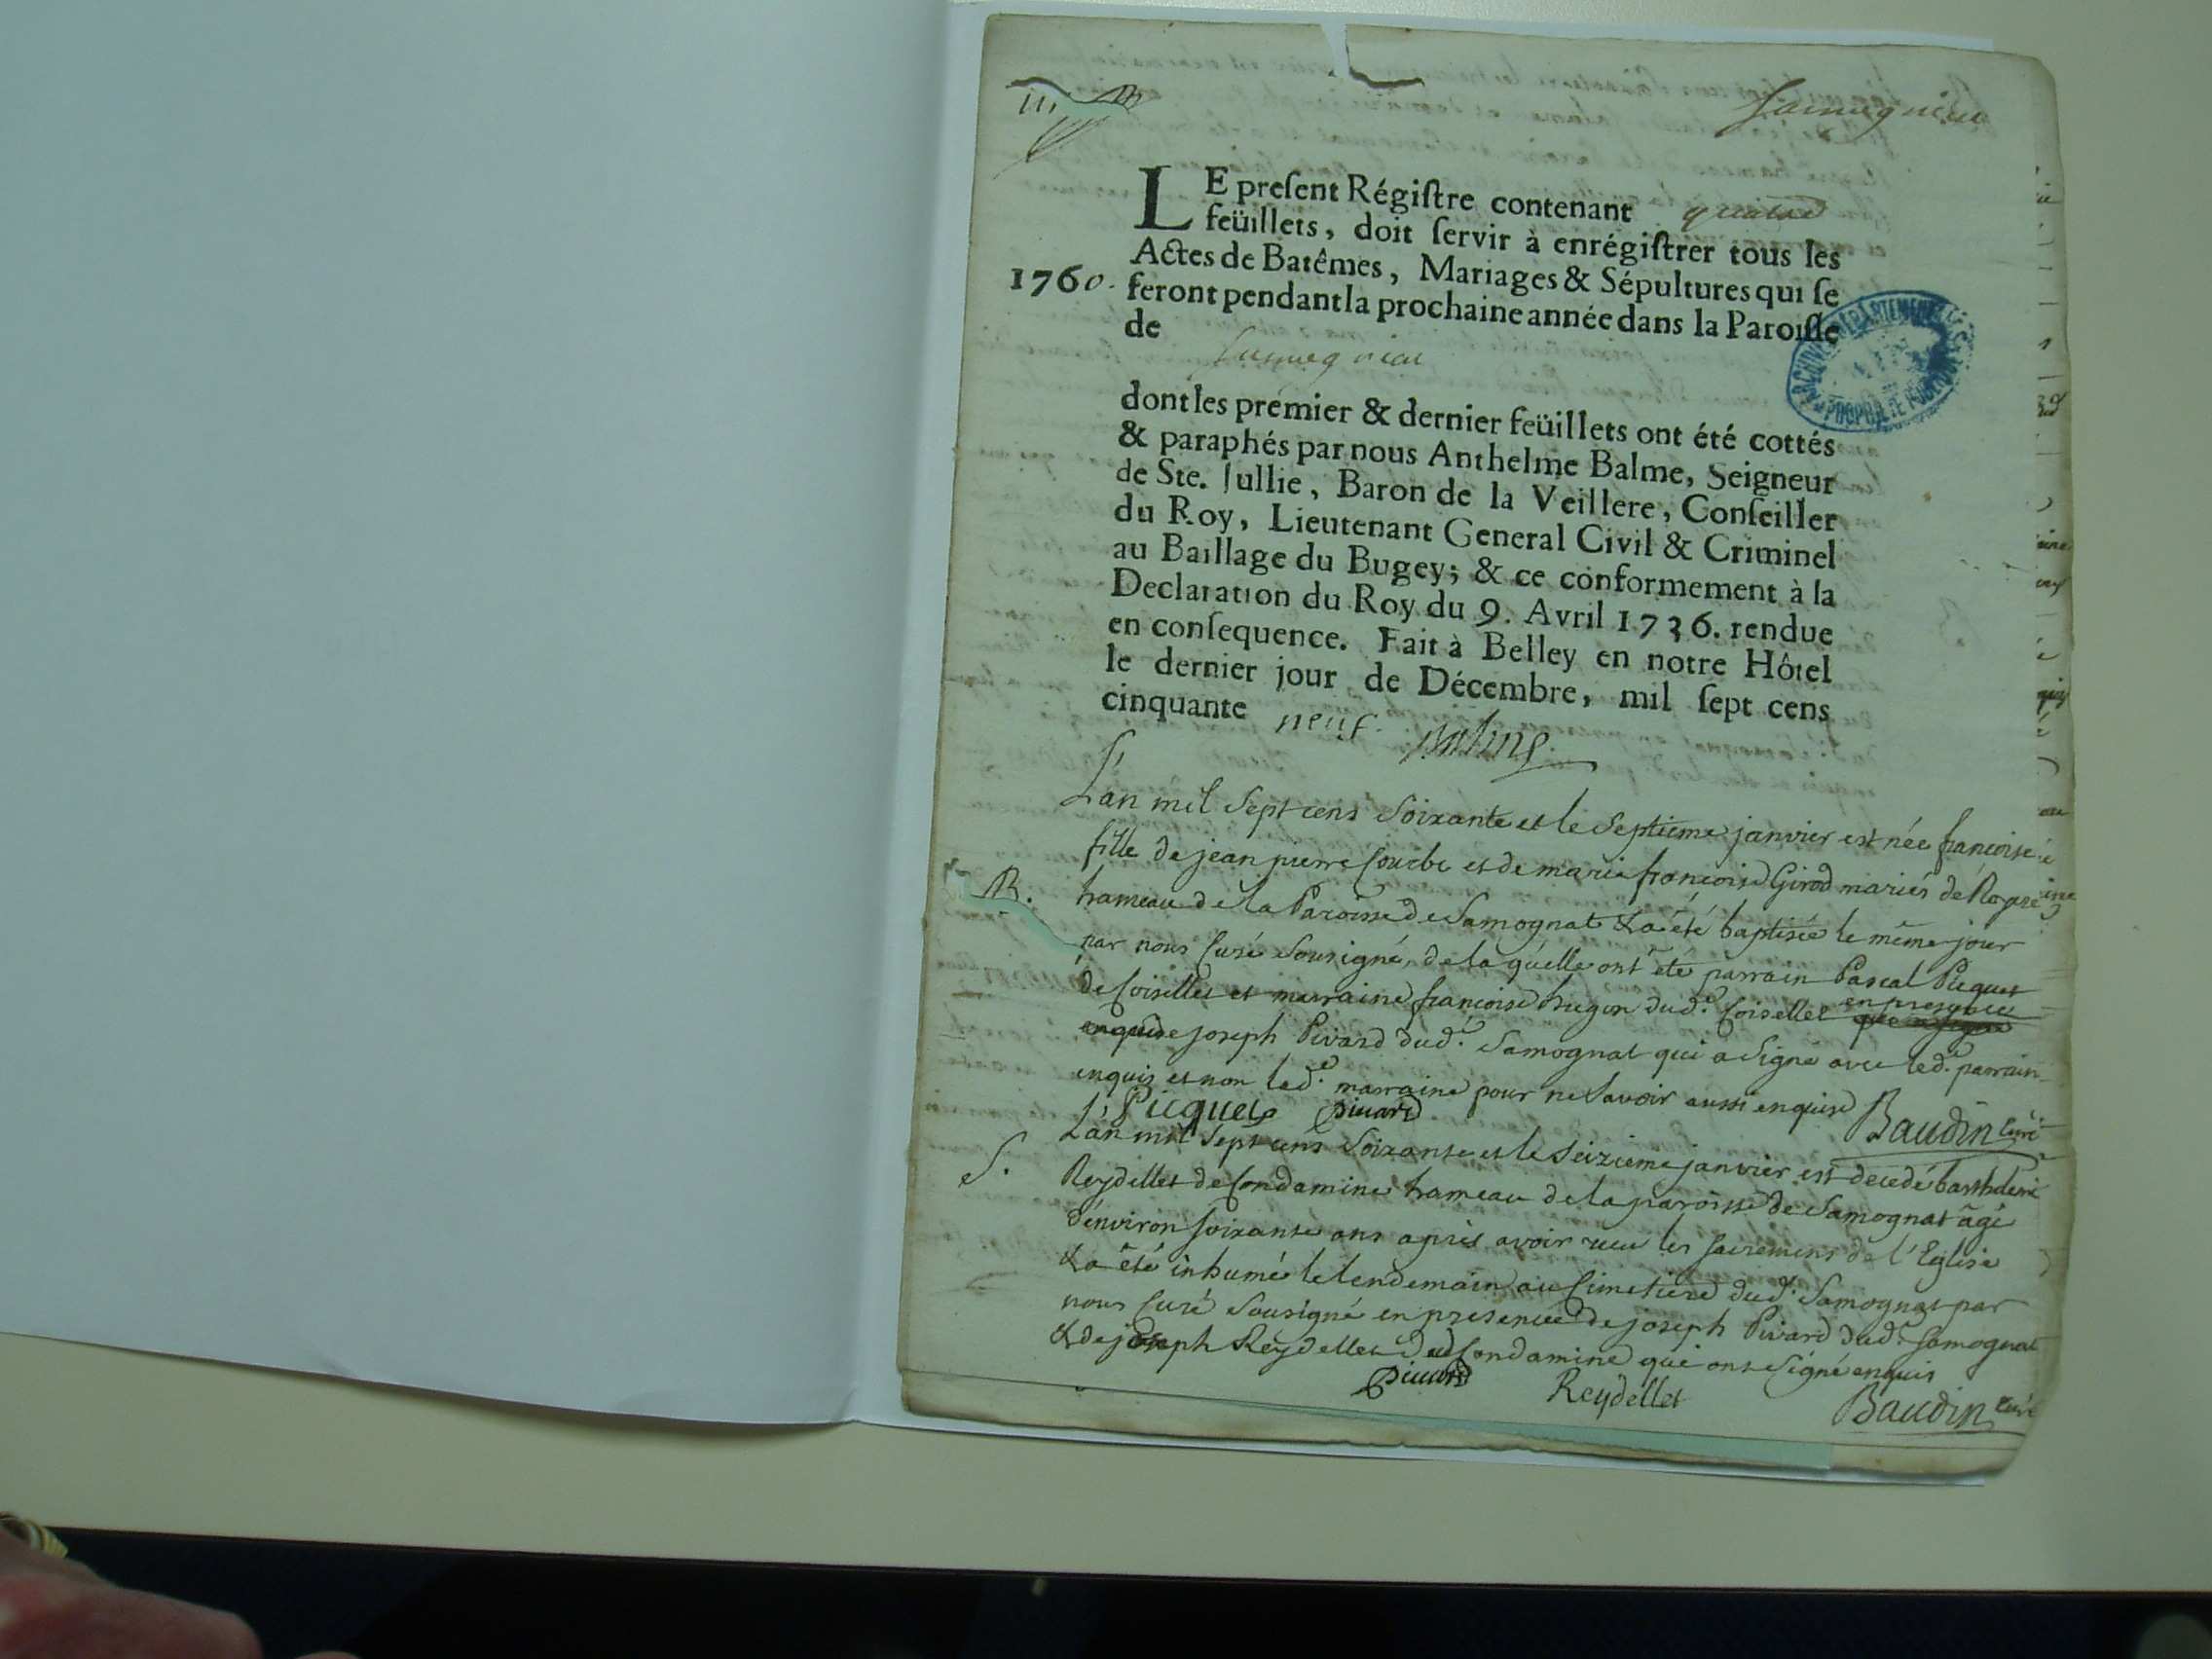 LE preſent Régiſtre contenant quatre
feüillets, doit ſervir à enrégiſtrer tous les
Actes de Batêmes, Mariages & Sépultures qui ſe
1760. feront pendant la prochaine année dans la Paroiſſe
de
dont les premier & dernier feüillets ont été cottés
& paraphés par nous Anthelme Balme, Seigneur
de Ste. Jullie, Baron de la Veillere, Conſeiller
du Roy, Lieutenant General Civil & Criminel
au Baillage du Bugey; & ce conformement à la
Declaration du Roy du 9. Avril 1736. rendue
en conſequence. Fait à Belley en notre Hôtel
le dernier jour de Décembre, mil ſept cens
cinquante neuf.
L'an mil Sept cens Soixante et le Septieme janvier est née francoise
fille de jean pierre Courbe et de marie francoise Girod mariés de
B. hameau de la Paroisse de Samognat & a été baptisée le même jour
par nous Curé Sousigné, de laquelle ont été parrain Pascal Picquet
de Coiselles et marraine francoise hugon dud. Coiselles en presence
de joseph Pivard dud. Samognat qui a Signé avec led. parrain
enquis et non lad. marraine pour ne Savoir aussi enquise
Picquet Pivard Baudin Curé
L'an mil Sept cens Soixante et le Seizieme janvier est decedé
S. Reydellet de Condamine hameau de la paroisse de Samognat âgé
d'environ soixante ans après avoir reçu les sacremens de l'Eglise
& a été inhumé le lendemain au Cimetiere dud. Samognat par
nous Curé Sousigné en presence de joseph Pivard dud. Samognat
& de joseph Reydellet dud Condamine qui ont Signé enquis
Pivard Reydellet Baudin Curé